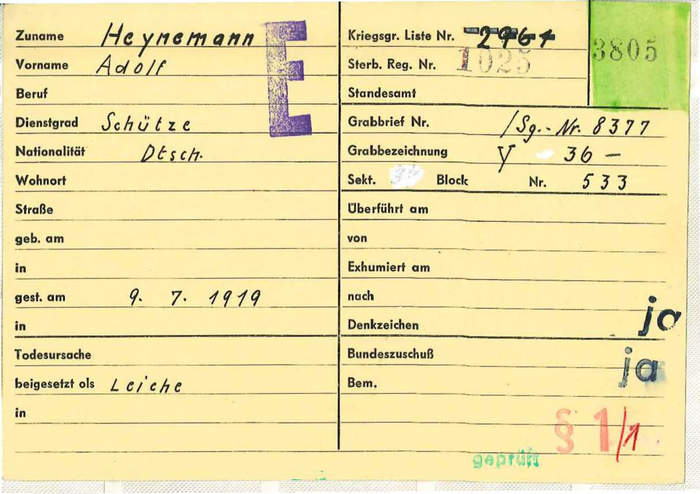 Zuname Heynemann
Vorname Adolf
Beruf
Dienstgrad Schütze
Nationalität Dtsch.
Wohnort
Straße
geb. am
in
gest. am 9. 7. 1919
in
Todesursache
beigesetzt als Leiche
in
E
Kriegsgr. Liste Nr.
Sterb. Reg. Nr. 1025
Standesamt
3805
Grabbrief Nr. /Sg.-Nr. 8377
Grabbezeichnung Y 36 –
Sekt. Block Nr. 533
Überführt am
von
Exhumiert am
nach
Denkzeichen ja
Bundeszuschuß ja
Bem.
§ 1/1
geprüft